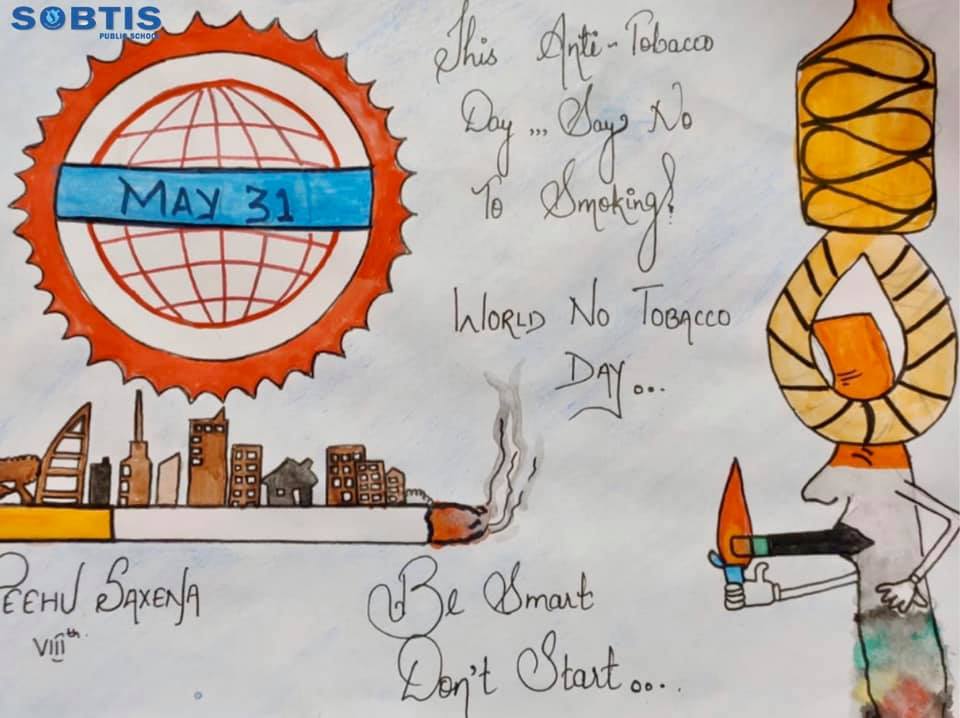 SOBTIS
PUBLIC SCHOOL
MAY 31
This Anti-Tobacco
Day ,,, Say No
To Smoking!
WORLD NO TOBACCO
DAY...
PEEHU SAXENA
VIIIth
Be Smart
Don't Start....